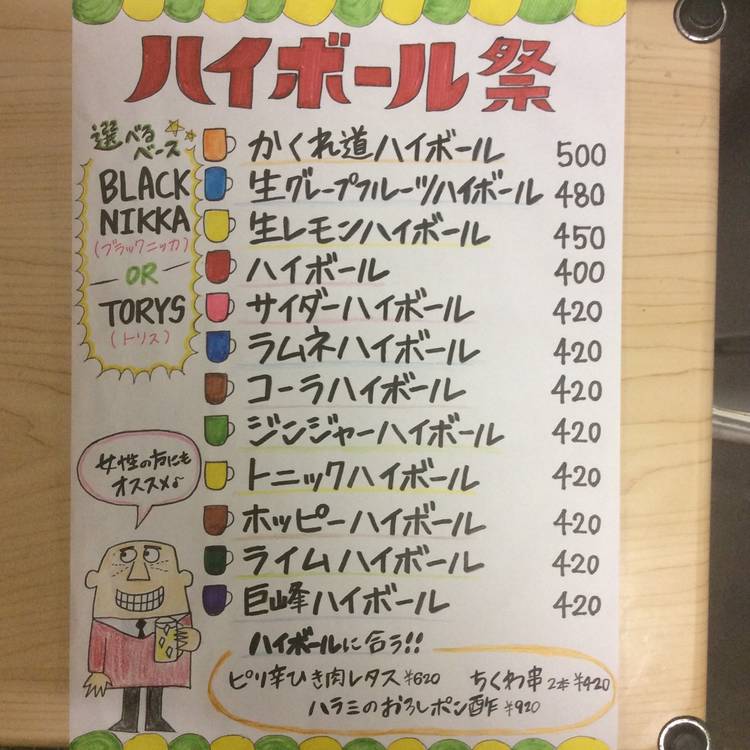 ハイボール祭
選べる
ベース
BLACK
NIKKA
(ブラックニッカ)
OR
TORYS
(トリス)
かくれ道ハイボール 500
生グレープフルーツハイボール 480
生レモンハイボール 450
ハイボール 400
サイダーハイボール 420
ラムネハイボール 420
コーラハイボール 420
ジンジャーハイボール 420
トニックハイボール 420
ホッピーハイボール 420
ライムハイボール 420
巨峰ハイボール 420
女性の方にも
オススメ♪
ハイボールに合う!!
ピリ辛ひき肉レタス ¥620 ちくわ串 2本 ¥420
ハラミのおろしポン酢 ¥920